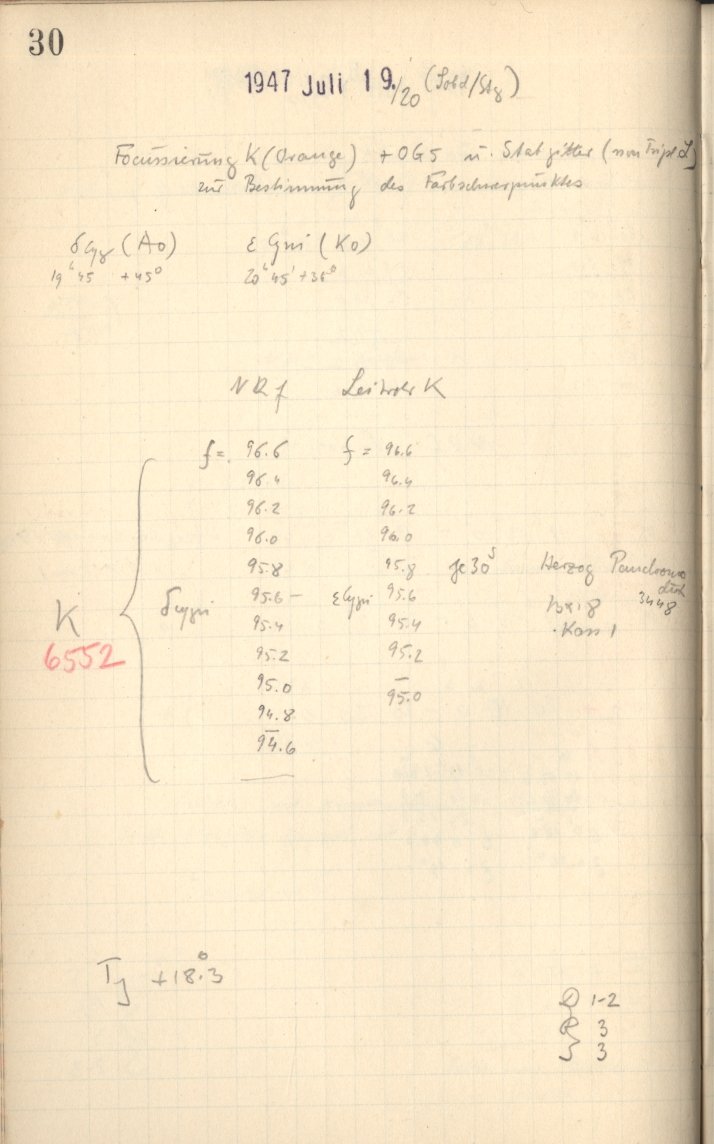 30
1947 Juli 19./20 (Sobd/Stg)
Focussierung K (Orange) + OG5 u. Stabgitter (von Tripl L)
zur Bestimmung des Farbschwerpunktes
δ Cyg (A0) ε Cygni (K0)
19h 45' +45° 20h 45' +36°
f Leitrohr K
f = 96.6 f = 96.6
96.4 96.4
96.2 96.2
96.0 96.0
95.8 95.8 je 30s Herzog Panchromo
δ Cygni 95.6 — ε Cygni 95.6 3448
K 95.4 95.4
6552 95.2 95.2
95.0 — 95.0
94.8
94.6
T +18.°3
D 1-2
R 3
S 3